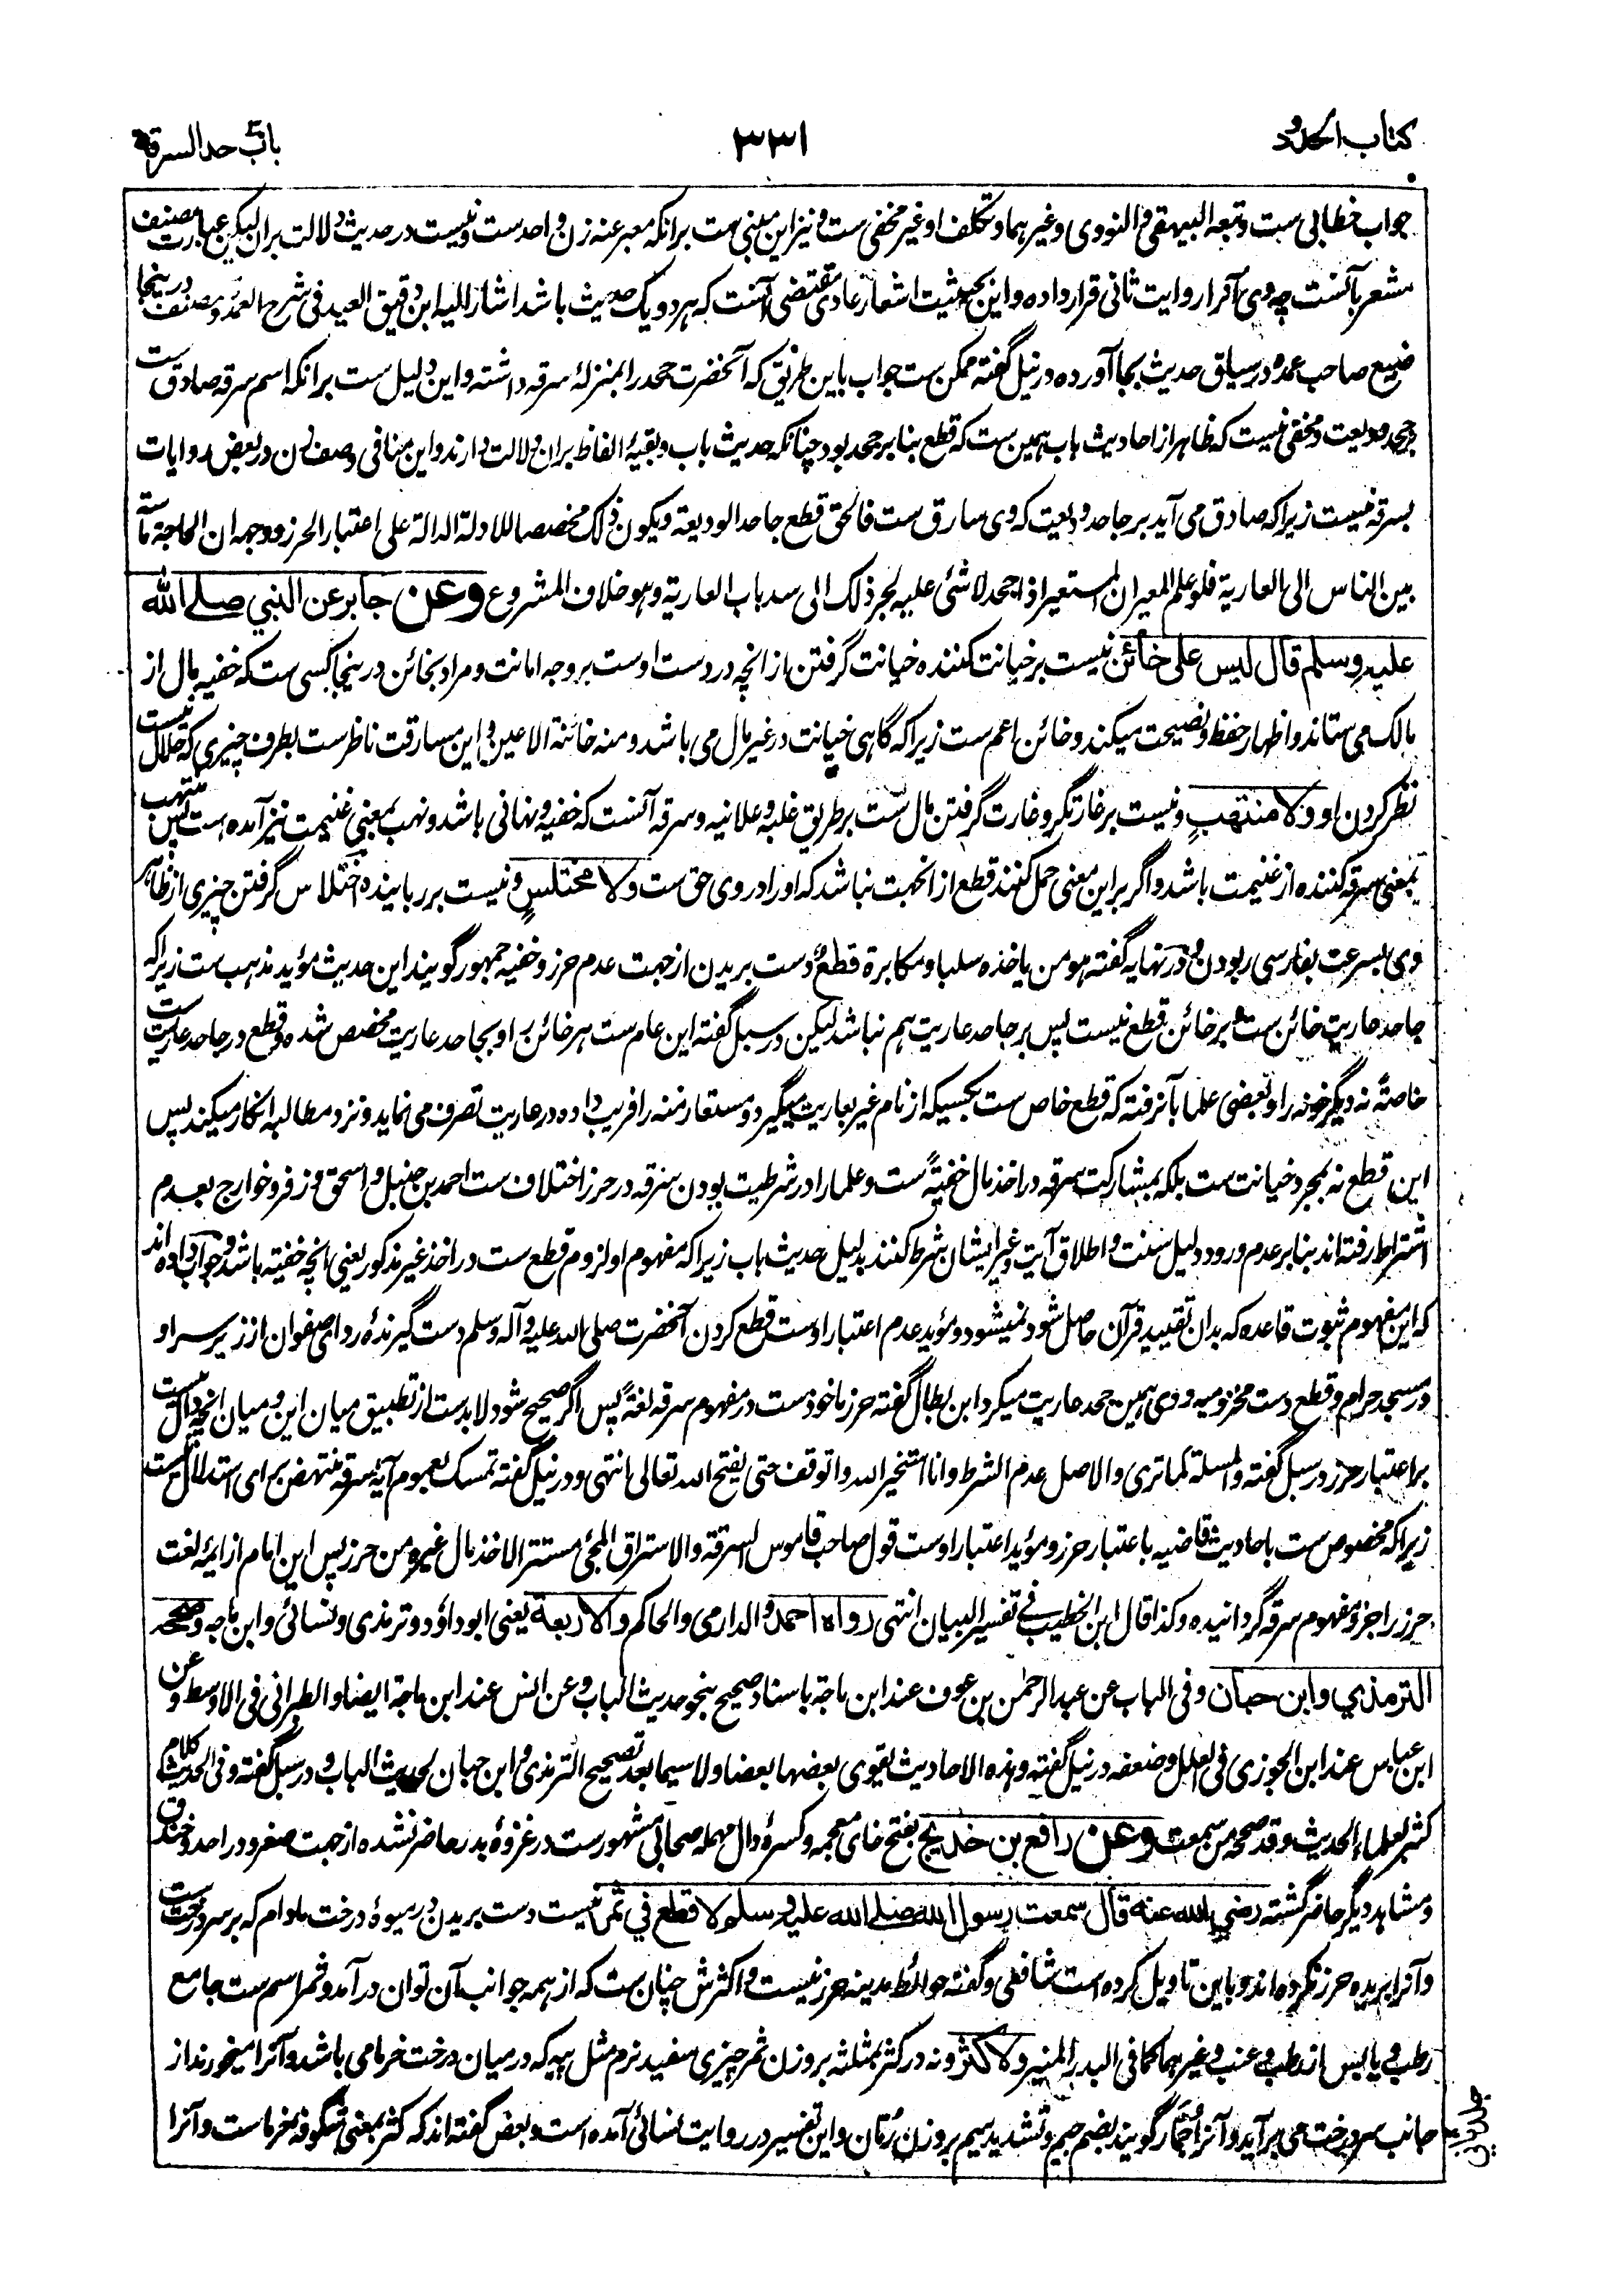 کتاب الحدود
۳۳۱
باب حد السرقة
جواب خطابی ست و تبعه البیهقی و النووی و غیرهما و تکلف او غیر مخفی ست و نیز این مبنی ست برانکه معبر عنه زن واحد ست و نیست در حدیث دلالت بران لیکن عبارت مصنف
مشعر بآنست چه وی آنرا روایت ثانی قرار داده و این بحیثیت اشعار عادی مقتضی آنست که هر دو یک حدیث باشد اشار الیه ابن دقیق العید فی شرح العمدة و مصنف درینجا
صنیع صاحب عمده در سیاق حدیث بجا آورده در نیل گفته ممکن ست جواب باین طریق که آنحضرت جحد را بمنزلهٔ سرقه داشته و این دلیل ست برانکه اسم سرقه صادق ست
بر جحد ودیعت و مخفی نیست که ظاهر از احادیث باب همین ست که قطع بنا بر جحد بود چنانکه حدیث باب و بقیهٔ الفاظ بران دلالت دارند و این منافی وصف زن در بعض روایات
بسرقه نیست زیرا که صادق می آید بر جاحد ودیعت که وی سارق ست فالحق قطع جاحد الودیعة و یکون ذلک مخصصا للادلة الدالة علی اعتبار الحرز و وجهه ان الحاجة ماسة
بین الناس الی العاریة فلو علم المعیر ان المستعیر اذا جحد لا شئی علیه لجر ذلک الی سد باب العاریة و هو خلاف المشروع وعن جابر عن النبي صلے الله
علیه وسلم قال لیس علی خائن نیست بر خیانت کننده خیانت گرفتن از انچه در دست اوست بر وجه امانت و مراد بخائن درینجا کسی ست که خفیه مال از
مالک می ستاند و اظهار حفظ و نصیحت میکند و خائن اعم ست زیرا که گاهی خیانت در غیر مال می باشد و منه خائنة الاعین و این مسارقت ناظر ست بطرف چیزی که حلال نیست
نظر کردن او ولا منتهب و نیست بر غارتگر و غارت گرفتن مال ست بر طریق غلبه و علانیه و سرقه آنست که خفیه و نهانی باشد و نهب بمعنی غنیمت نیز آمده است پس منتهب
بمعنی سرقه کننده از غنیمت باشد و اگر بر این معنی حمل کنند قطع از انجهت نباشد که او را در وی حق ست ولا مختلس و نیست بر رباینده اختلاس گرفتن چیزی از ظاهر
وی بسرعت بفارسی ربودن و در نهایه گفته هو من یاخذه سلبا و مکابرة قطع دست بریدن از جهت عدم حرز و خفیه جمهور گویند این حدیث مؤید مذهب ست زیرا که
جاحد عاریت خائن ست و بر خائن قطع نیست پس بر جاحد عاریت هم نباشد لیکن در سبل گفته این عام ست هر خائن را و بجاحد عاریت مخصص شده و قطع در جاحد عاریت ست
خاصةً نه دیگر خونه را و بعضی علما بآنرفته که قطع خاص ست بکسیکه از نام غیر بعاریت میگیرد و مستعار منه را فریب داده در عاریت تصرف می نماید و نزد مطالبه انکار میکند پس
این قطع نه بمجرد خیانت ست بلکه بمشارکت سرقه در اخذ مال خفیةً ست و علما را در شرطیت بودن سرقه در حرز اختلاف ست احمد بن حنبل و اسحق و زفر و خوارج بعدم
اشتراط رفته اند بنا بر عدم ورود دلیل سنت و اطلاق آیت و غیر ایشان شرط کنند بدلیل حدیث باب زیرا که مفهوم او لزوم قطع ست در اخذ غیر مذکور یعنی انچه خفیة باشد و جواب داده اند
که این مفهوم ثبوت قاعده که بدان تقیید قرآن حاصل شود نمیشود و مؤید عدم اعتبار اوست قطع کردن آنحضرت صلی الله علیه و آله و سلم دست گیرندهٔ ردای صفوان از زیر سر او
در مسجد حرام و قطع دست مخزومیه و وی همین جحد عاریت میکرد ابن بطال گفته حرز ماخوذ ست در مفهوم سرقه لغةً پس اگر صحیح شود لابدست از تطبیق میان این و میان انچه دال نیست
بر اعتبار حرز در سبل گفته والمسئلة کما تری والاصل عدم الشرط وانا استخیر الله واتوقف حتی یفتح الله تعالی انتهی و در نیل گفته تمسک بعموم آیهٔ سرقه منتهض برای استدلال نیست
زیرا که مخصوص ست باحادیث قاضیه باعتبار حرز و مؤید اعتبار اوست قول صاحب قاموس السرقة والاستراق المجئ مستترا لاخذ مال غیره من حرز پس این امام از ائمهٔ لغت
حرز را جزو مفهوم سرقه گردانیده و کذا قال ابن الخطیب فی تفسیر البیان انتهی رواه احمد و الدارمی والحاکم والاربعة یعنی ابو داؤد و ترمذی و نسائی و ابن ماجه وصححه
الترمذي وابن حبان و فی الباب عن عبد الرحمن بن عوف عند ابن ماجة باسناد صحیح بنحو حدیث الباب و عن انس عند ابن ماجة ایضا و الطبرانی فی الاوسط و عن
ابن عباس عند ابن الجوزی فی العلل و ضعفه در نیل گفته و هذه الاحادیث یقوی بعضها بعضا و لا سیما بعد تصحیح الترمذی و ابن حبان لحدیث الباب و در سبل گفته و فی الحدیث کلام
کثیر لعلماء الحدیث و قد صححه من سمعت وعن رافع بن خدیج بفتح خای معجمه و کسرهٔ دال مهمله صحابی مشهور ست در غزوهٔ بدر حاضر نشده از جهت صغر و در احد و خندق
و مشاهد دیگر حاضر گشته رضي الله عنه قال سمعت رسول الله صلے الله علیه وسلم لا قطع في ثمر نیست دست بریدن در میوهٔ درخت مادام که بر سر درخت ست
و آنرا بریده حرز نکرده اند و باین تاویل کرده است شافعی و گفته حوائط مدینه حرز نیست و اکثرش چنان ست که از همه جوانب آن توان در آمد و ثمر اسم ست جامع
رطب و یابس از رطب و عنب و غیرهما کما فی البدر المنیر ولا کثر و نه در کثر بمثلثه بروزن ثمر چیزی سفید نرم مثل پیه که در میان درخت خرما می باشد و آنرا میخورند از
جانب سر درخت می برآید و آنرا جُمّار گویند بضم جیم و تشدید میم بروزن رُمّان و این تفسیر در روایت نسائی آمده است و بعض گفته اند که کثر بمعنی شگوفه خرما ست و آنرا